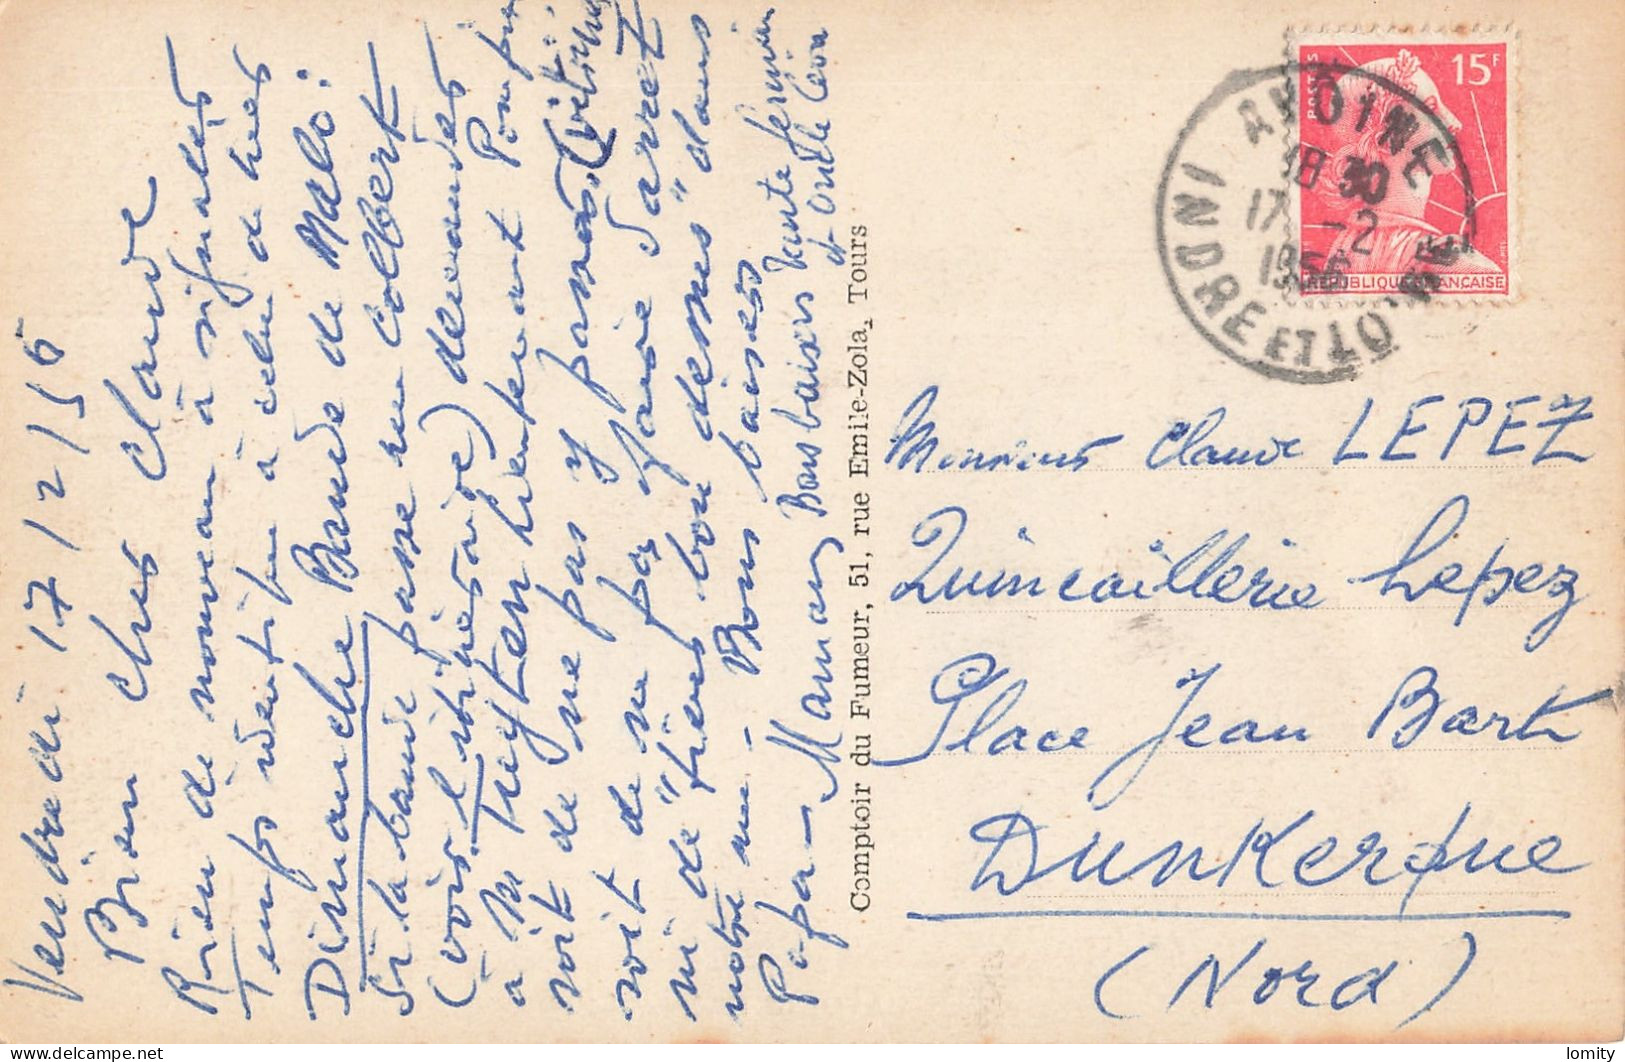 Vendredi 17/2/56
Bien cher Claude
Rien de nouveau à signaler
Temps identique à celui d'hier
Dimanche Bande de Malo:
Si la bande passe rue Colbert
(voir l'itinéraire) demandes
à M maintenant
soit de ne pas y passer
soit de ne pas faire d'arret
ni de "tiens bon dessus" dans
notre rue - Bons baisers
Papa - Maman Bons baisers tante
et oncle Léon
Comptoir du Fumeur, 51, rue Emile-Zola, Tours
POSTES 15F
REPUBLIQUE FRANÇAISE
AVOINE
18 30
17 -2
1956
INDRE ET LOIRE
Monsieur Claude LEPEZ
Quincaillerie Lepez
Place Jean Bart
Dunkerque
(Nord)
lomity
delcampe.net